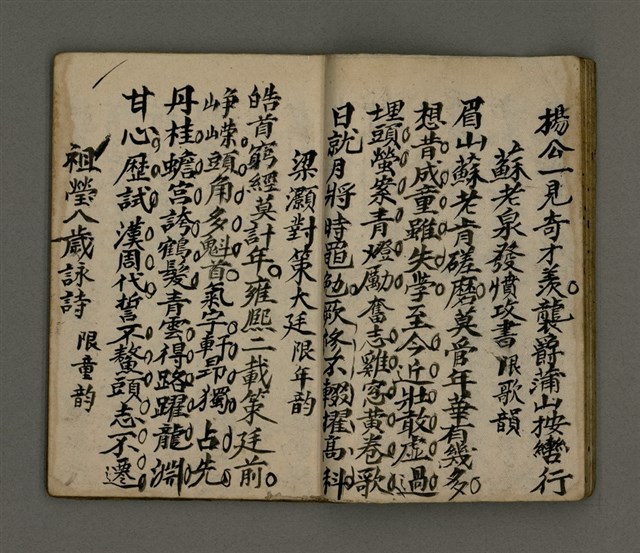 楊公一見奇才羨襲爵蒲山按轡行
蘇老泉發憤攻書 限歌韻
眉山蘇老肯磋磨莫管年華有幾多
想昔成童雖失學至今近壯敢虛過
埋頭螢案青燈勵奮志雞窓黃卷歌
日就月將時黽勉欧修不輟擢高科
梁灝對策大廷 限年韵
皓首窮經莫計年雍熙二載策廷前
崢嶸頭角多魁首氣宇軒昂獨占先
丹桂蟾宮誇鶴髮青雲得路躍龍淵
甘心歷試漢周代誓不鰲頭志不遷
祖瑩八歲詠詩 限童韵